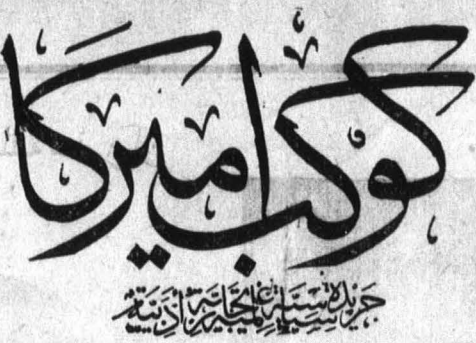 كوكب اميركا
جريدة سياسية علمية تجارية ادبية